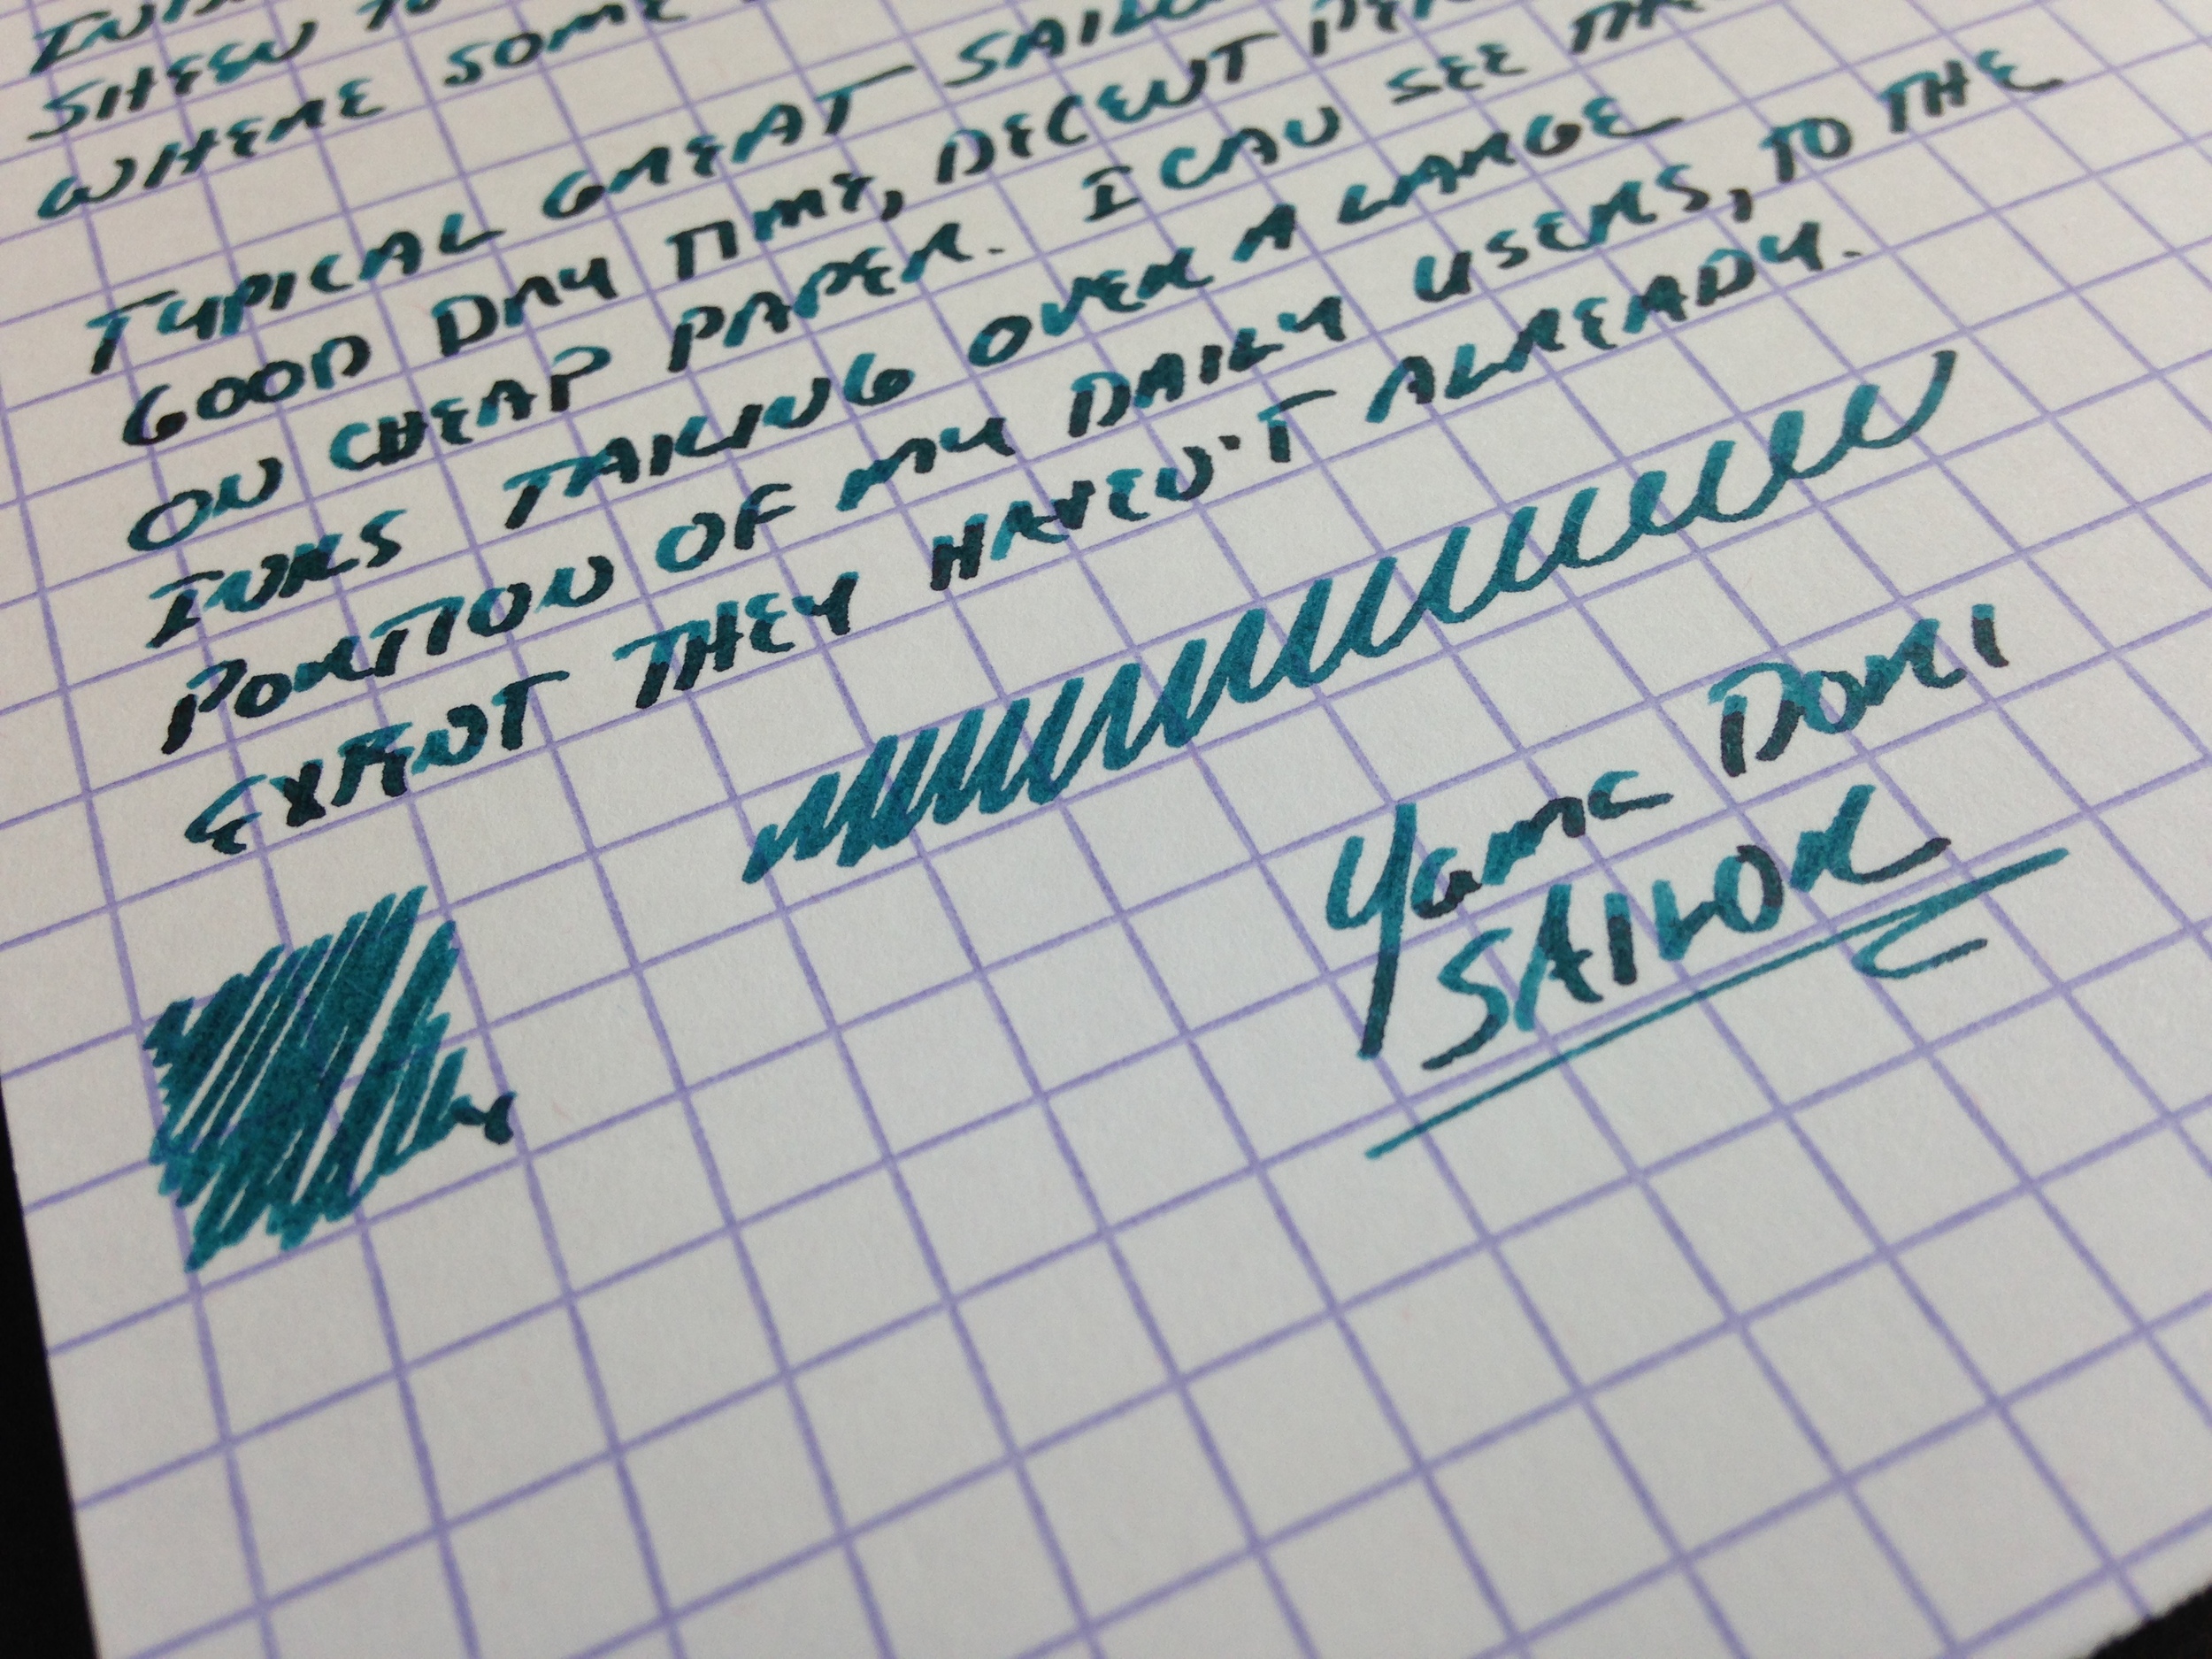 SHEEN TO
WHERE SOME
TYPICAL GREAT SAILO
GOOD DRY TIME, DECENT PER
ON CHEAP PAPER. I CAN SEE
INKS TAKING OVER A LARGE
PORTION OF MY DAILY USERS, TO THE
EXTENT THEY HAVEN'T ALREADY.
Yama Dori
SAILOR